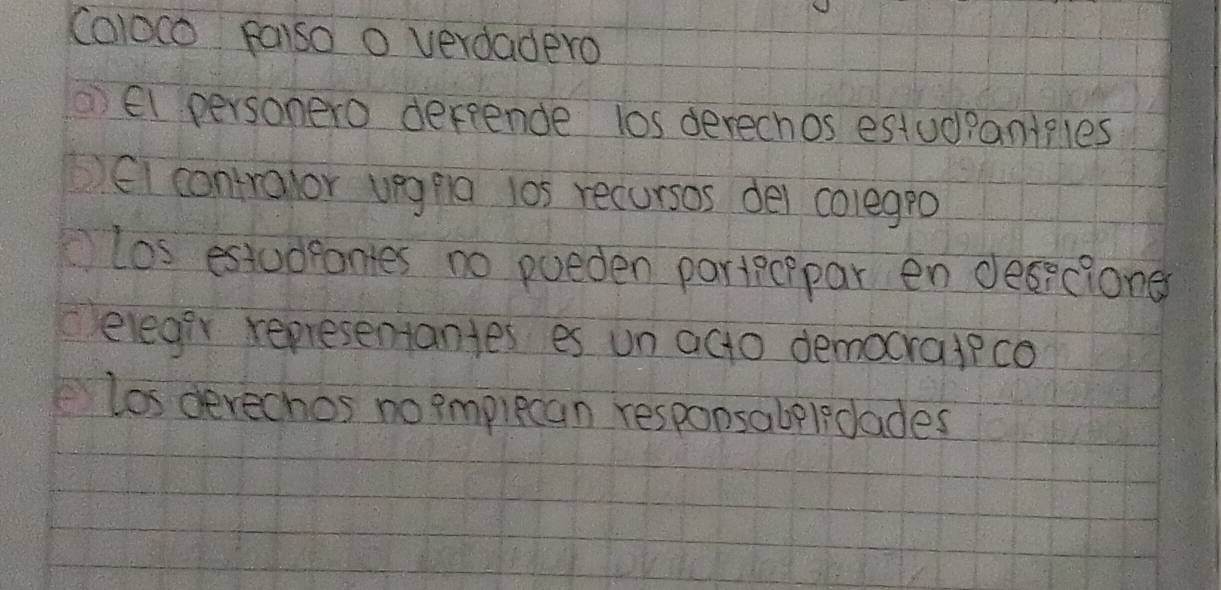 Coloco Falso o verdadero
a) El personero defiende los derechos estudiantiles
b) El contralor vigila los recursos del colegio
c) los estudiantes no pueden participar en desiciones
d) elegir representantes es un acto democratico
e) los derechos no implican responsabilidades